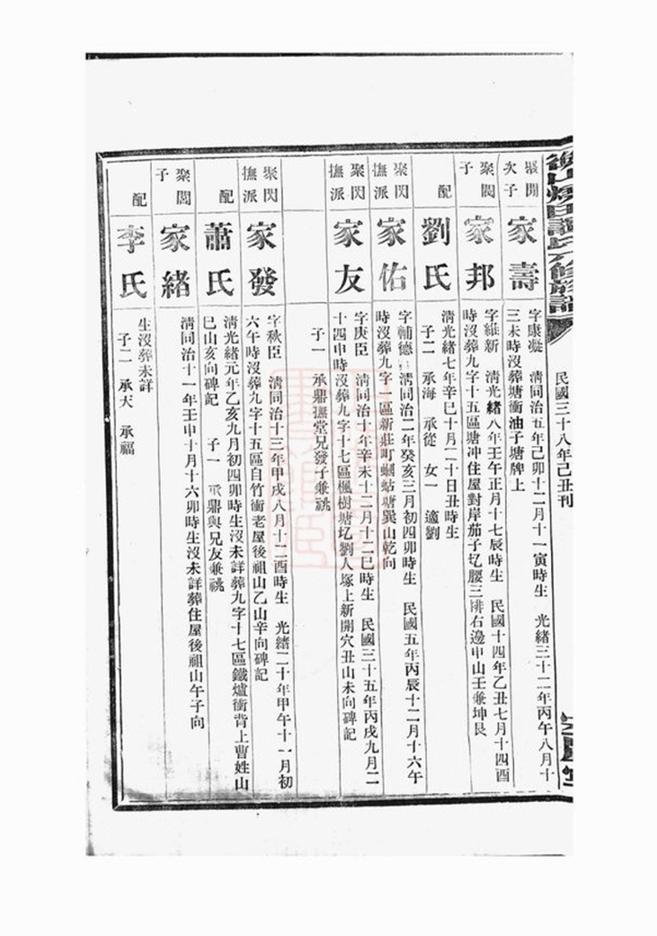 民國三十八年己丑刊
聚開次子
家壽
字康凝 清同治五年己卯十二月十一寅時生 光緒三十二年丙午八月十
三未時沒葬塘衝油子塘牌上
聚閣子
家邦
字維新 清光緒八年壬午正月十七辰時生 民國十四年乙丑七月十四酉
時沒葬九字十五區塘冲住屋對岸茄子圪腰三排右邊申山壬兼坤艮
配
劉氏
清光緒七年辛巳十月二十日丑時生
子二 承海 承從 女一 適劉
聚閃撫派
家佑
字補德 清同治二年癸亥三月初四卯時生 民國五年丙辰十二月十六午
時沒葬九字一區新莊町蟈蛄塘巽山乾向
聚閃撫派
家友
字庚臣 清同治十年辛未十二月十二巳時生 民國三十五年丙戌九月二
十四申時沒葬九字十七區楓樹塘圪劉人塚上新開穴丑山未向碑記
子一 承鼎撫堂兄發子兼祧
聚閃撫派
家發
字秋臣 清同治十三年甲戌八月十二酉時生 光緒二十年甲午十一月初
六午時沒葬九字十五區自竹衝老屋後祖山乙山辛向碑記
配
蕭氏
清光緒元年乙亥九月初四卯時生沒未詳葬九字十七區鐵爐衝背上曹姓山
巳山亥向碑記 子一 承鼎與兄友兼祧
聚閣子
家緒
清同治十一年壬申十月十六卯時生沒未詳葬住屋後祖山午子向
配
李氏
生沒葬未詳
子二 承天 承福